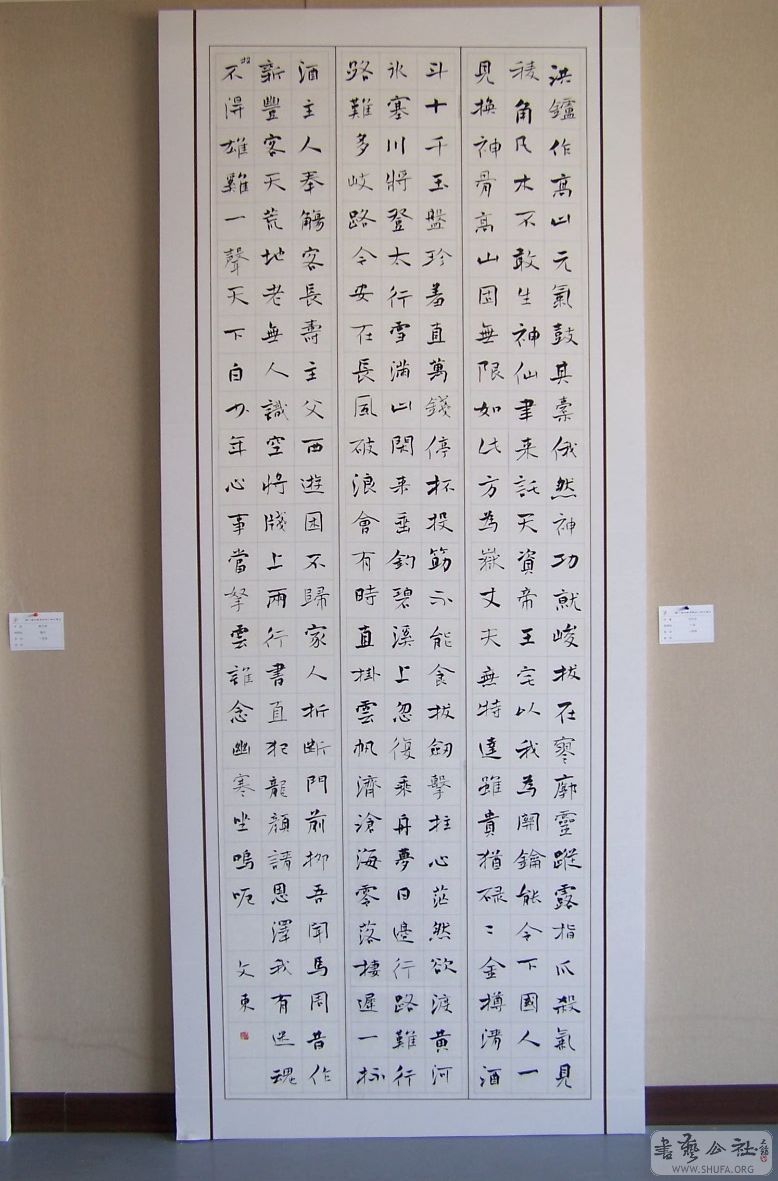 洪鑪作高山元氣鼓其橐俄然神功就峻拔在寥廓靈蹤露指爪殺氣見
稜角凡木不敢生神仙聿来託天資帝王宅以我為關鑰能令下國人一
見換神骨高山固無限如此方為嶽丈夫無特達雖貴猶碌〻金樽清酒
斗十千玉盤珍羞直萬錢停杯投筯不能食拔劍擊柱心茫然欲渡黄河
氷塞川將登太行雪滿山閑来垂釣碧溪上忽復乘舟夢日邊行路難行
路難多岐路今安在長風破浪會有時直掛雲帆濟滄海零落棲遲一杯
酒主人奉觴客長壽主父西遊困不歸家人折断門前柳吾聞馬周昔作
新豐客天荒地老無人識空將牋上兩行書直犯龍顔請恩澤我有迷魂
不得雄雞一聲天下白少年心事當拏雲誰念幽寒坐嗚呃
文東
書藝公社
WWW.SHUFA.ORG